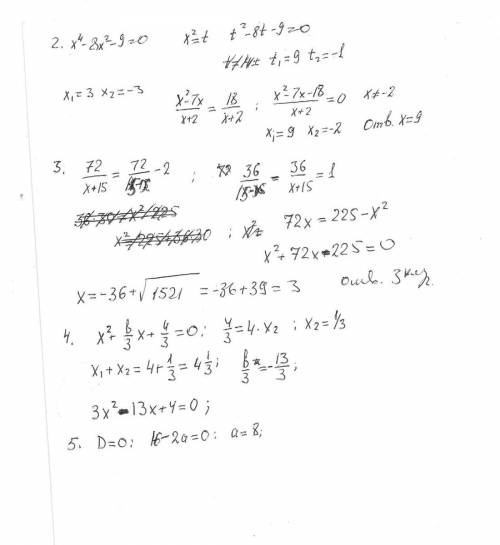 2. x⁴-8x²-9=0   x²=t   t²-8t-9=0
t₁=9 t₂=-1
x₁=3 x₂=-3   (x²-7x)/(x+2) = 18/(x+2) ; (x²-7x-18)/(x+2) = 0   x≠-2
x₁=9 x₂=-2   Отв. x=9
3. 72/(x+15) = 72/(15-x) - 2 ; 36/(15-x) = 36/(x+15) = 1
72x = 225 - x²
x²+72x-225=0
x=-36+√1521 = -36+39=3   отв. 3 км/ч.
4. x²+ b/3 x + 4/3 = 0 ; 4/3 = 4·x₂ ; x₂=1/3
x₁+x₂ = 4+ 1/3 = 4 1/3 ; b/3 = -13/3 ;
3x²-13x+4=0 ;
5. D=0 ; 16-2a=0 ; a=8 ;